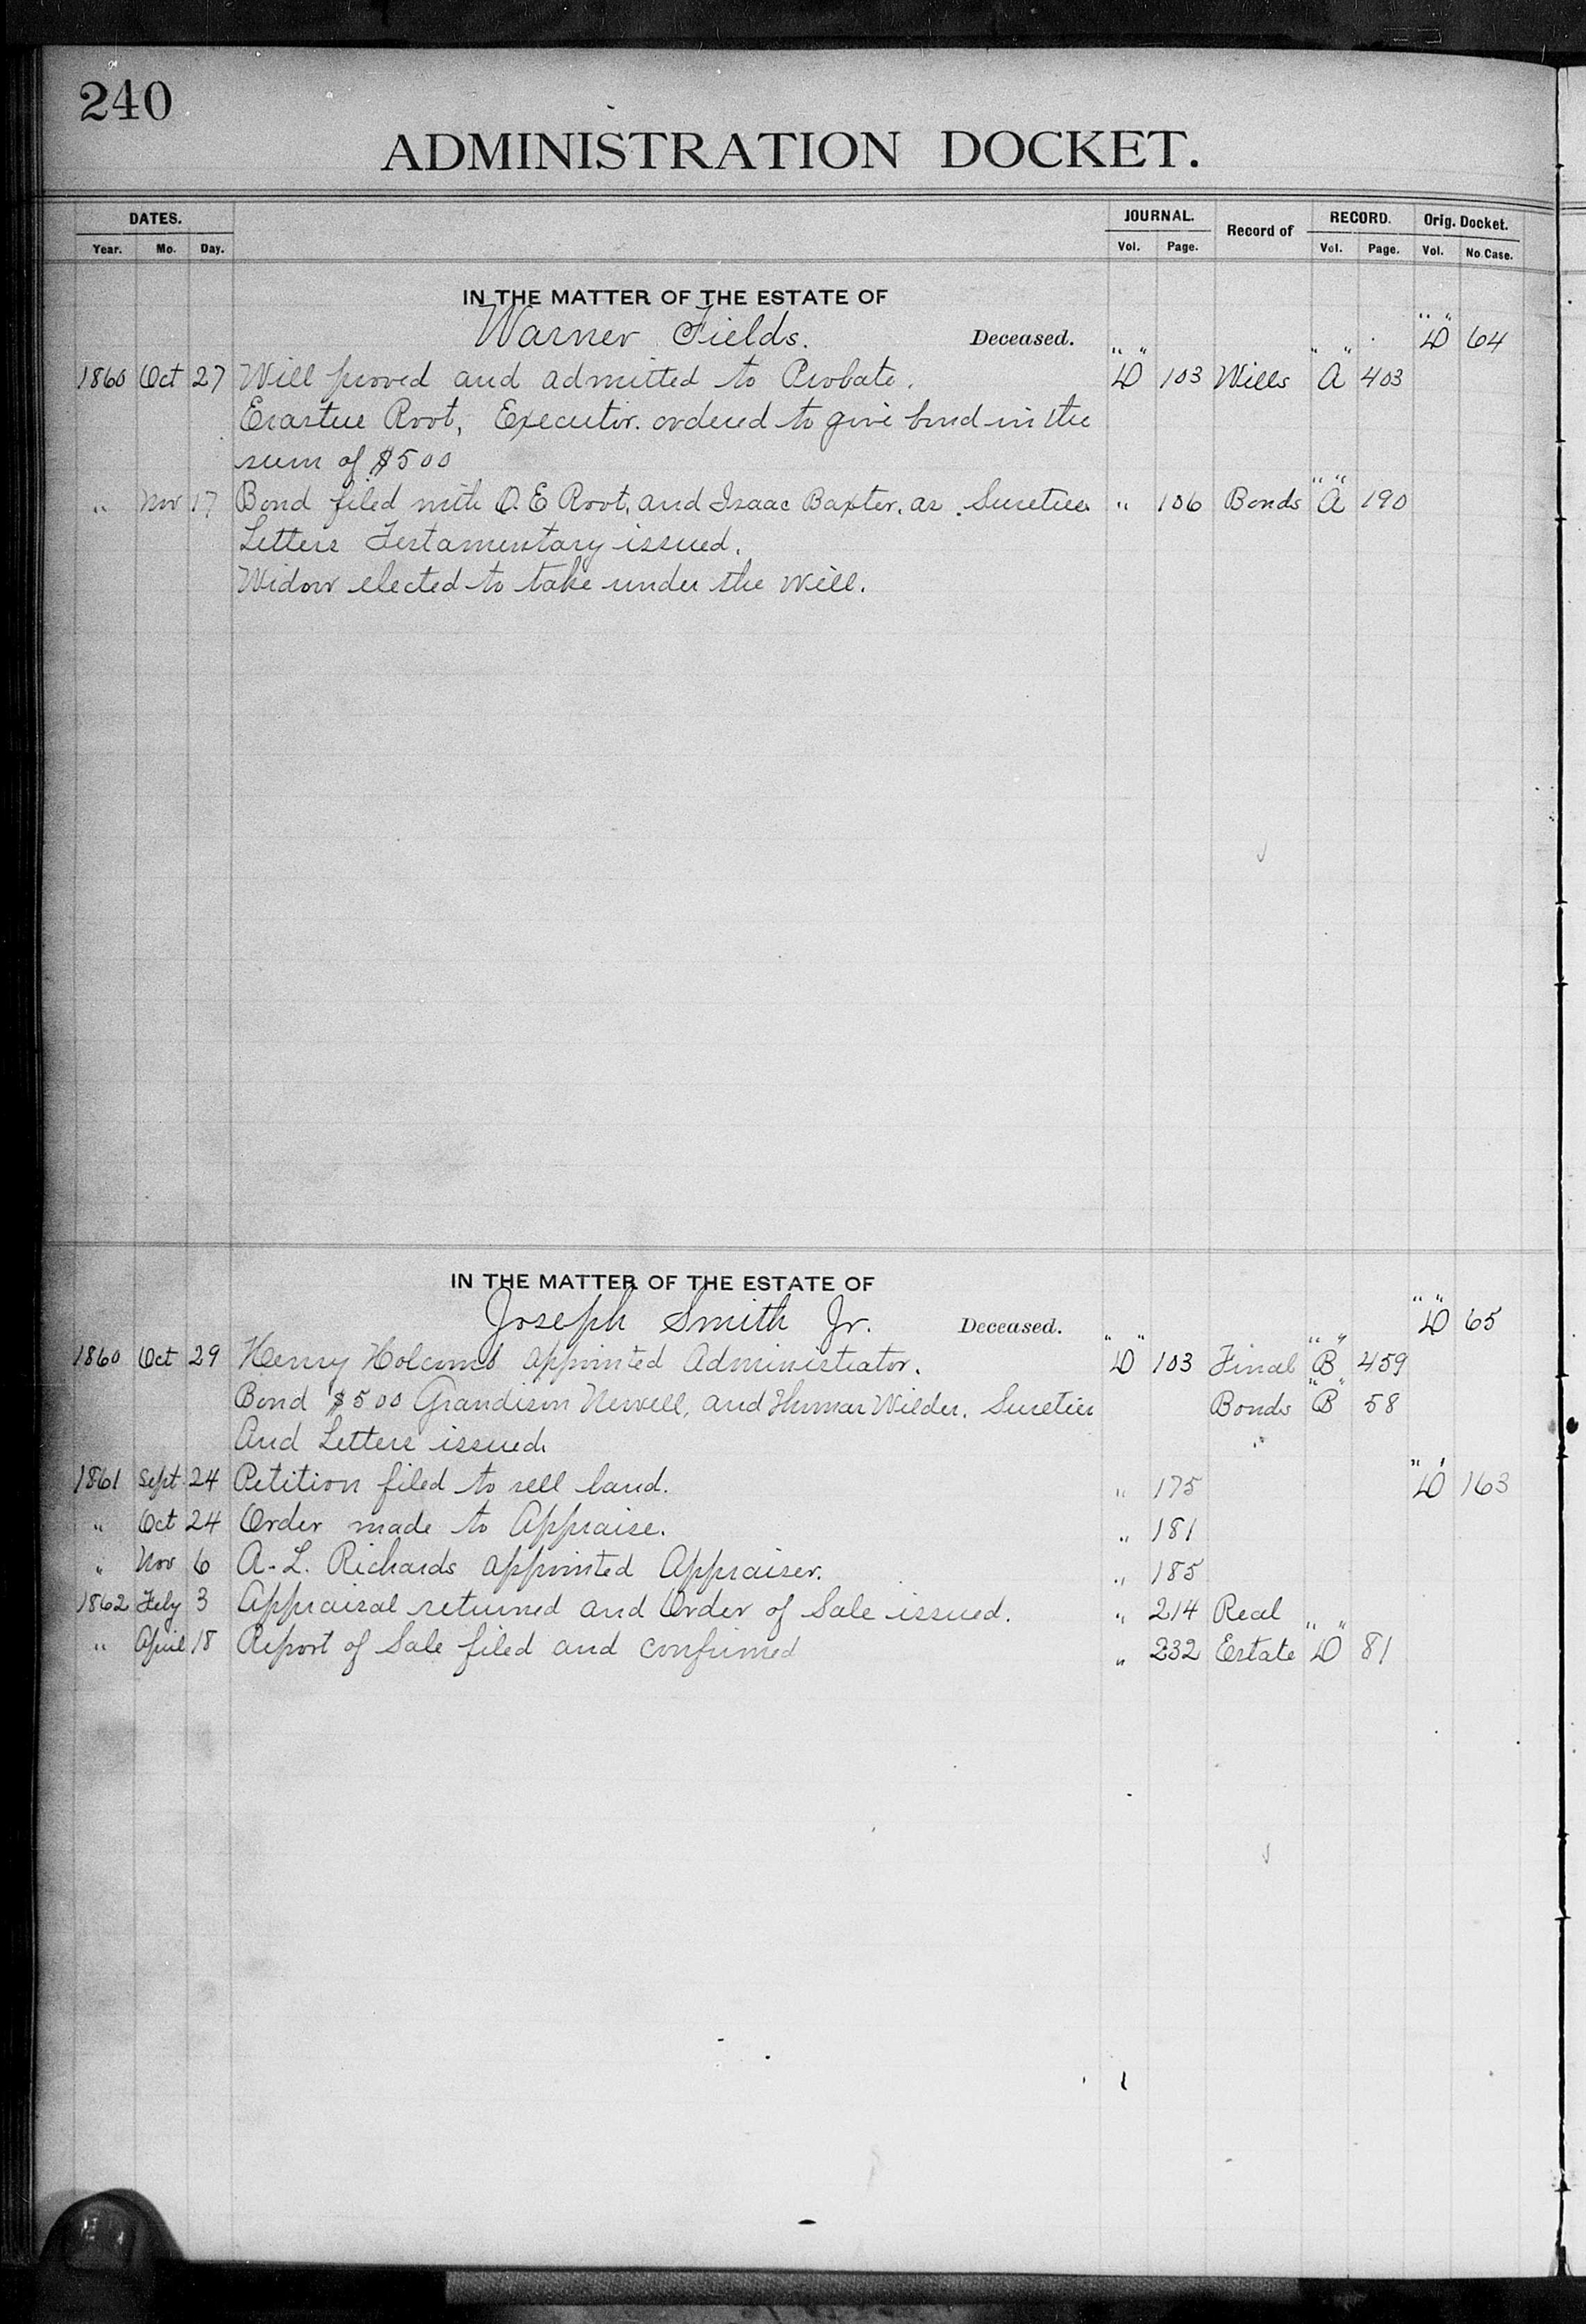 240
ADMINISTRATION DOCKET.
DATES. JOURNAL. Record of RECORD. Orig. Docket.
Year. Mo. Day. Vol. Page. Vol. Page. Vol. No. Case.
IN THE MATTER OF THE ESTATE OF
Warner Fields. Deceased. "D" 64
1860 Oct 27 Will proved and admitted to Probate. "D" 103 Wills "A" 403
Erastus Root, Executor. ordered to give bond in the
sum of $500
" Nov 17 Bond filed with O. E Root, and Isaac Baxter, as Sureties " 106 Bonds "A" 190
Letters Testamentary issued.
Widow elected to take under the will.
IN THE MATTER OF THE ESTATE OF
Joseph Smith Jr. Deceased. "D" 65
1860 Oct 29 Henry Holcomb appointed Administrator. "D" 103 Final "B" 459
Bond $500 Grandison Newell, and Wilder, Sureties Bonds "B" 58
And Letters issued.
1861 Sept 24 Petition filed to sell land. " 175 "D" 163
" Oct 24 Order made to Appraise. " 181
" Nov 6 A. L. Richards appointed Appraiser. " 185
1862 Feby 3 Appraisal returned and Order of Sale issued. " 214 Real
" April 18 Report of Sale filed and confirmed " 232 Estate "D" 81